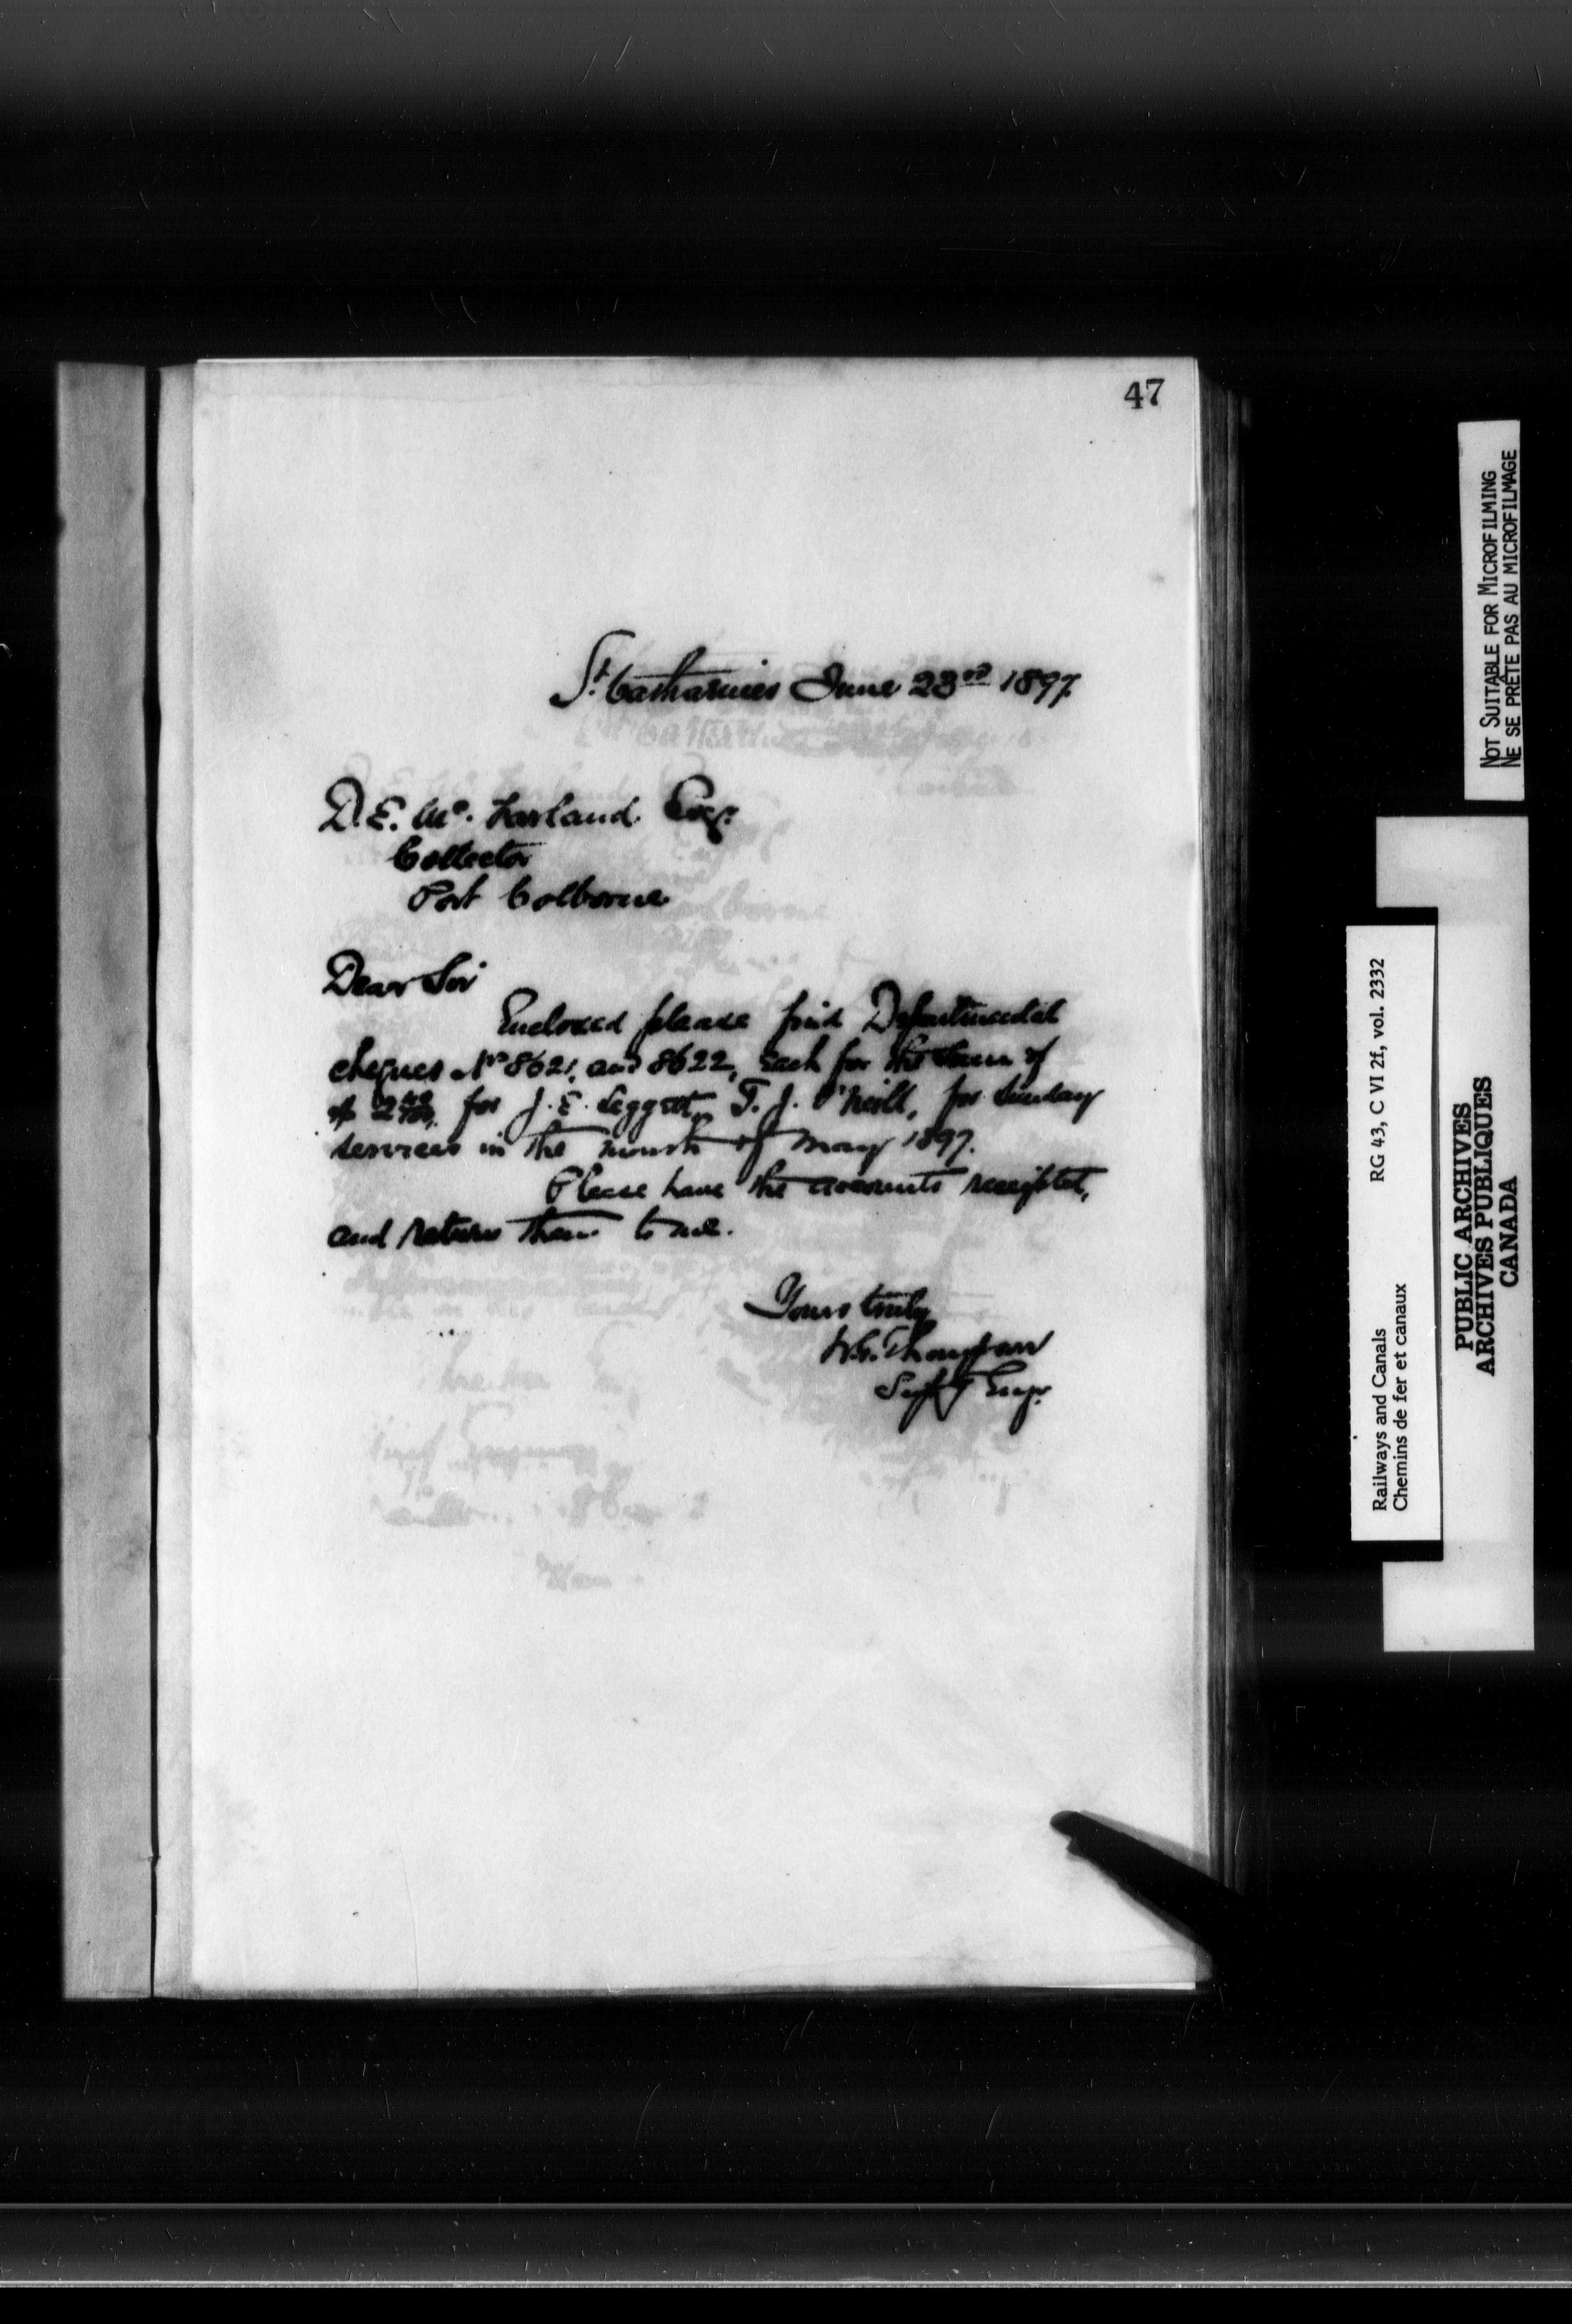 47
St. Catharines June 23rd 1897.
D. E. Mc. Farland. Esqr.
Collector
Port Colborne
Dear Sir
Enclosed please find Departmental
cheques No 8621, and 8622, each for the sum of
of 2 40/100, for J. E. Leggett, T. J. O'Neill, for Sunday
services in the month of May 1897.
Please have the accounts receipted,
and return them to me.
Yours truly
W. G. Thompson
Supt Engr.
NOT SUITABLE FOR MICROFILMING
NE SE PRÊTE PAS AU MICROFILMAGE
Railways and Canals RG 43, C VI 2f, vol. 2332
Chemins de fer et canaux
PUBLIC ARCHIVES
ARCHIVES PUBLIQUES
CANADA